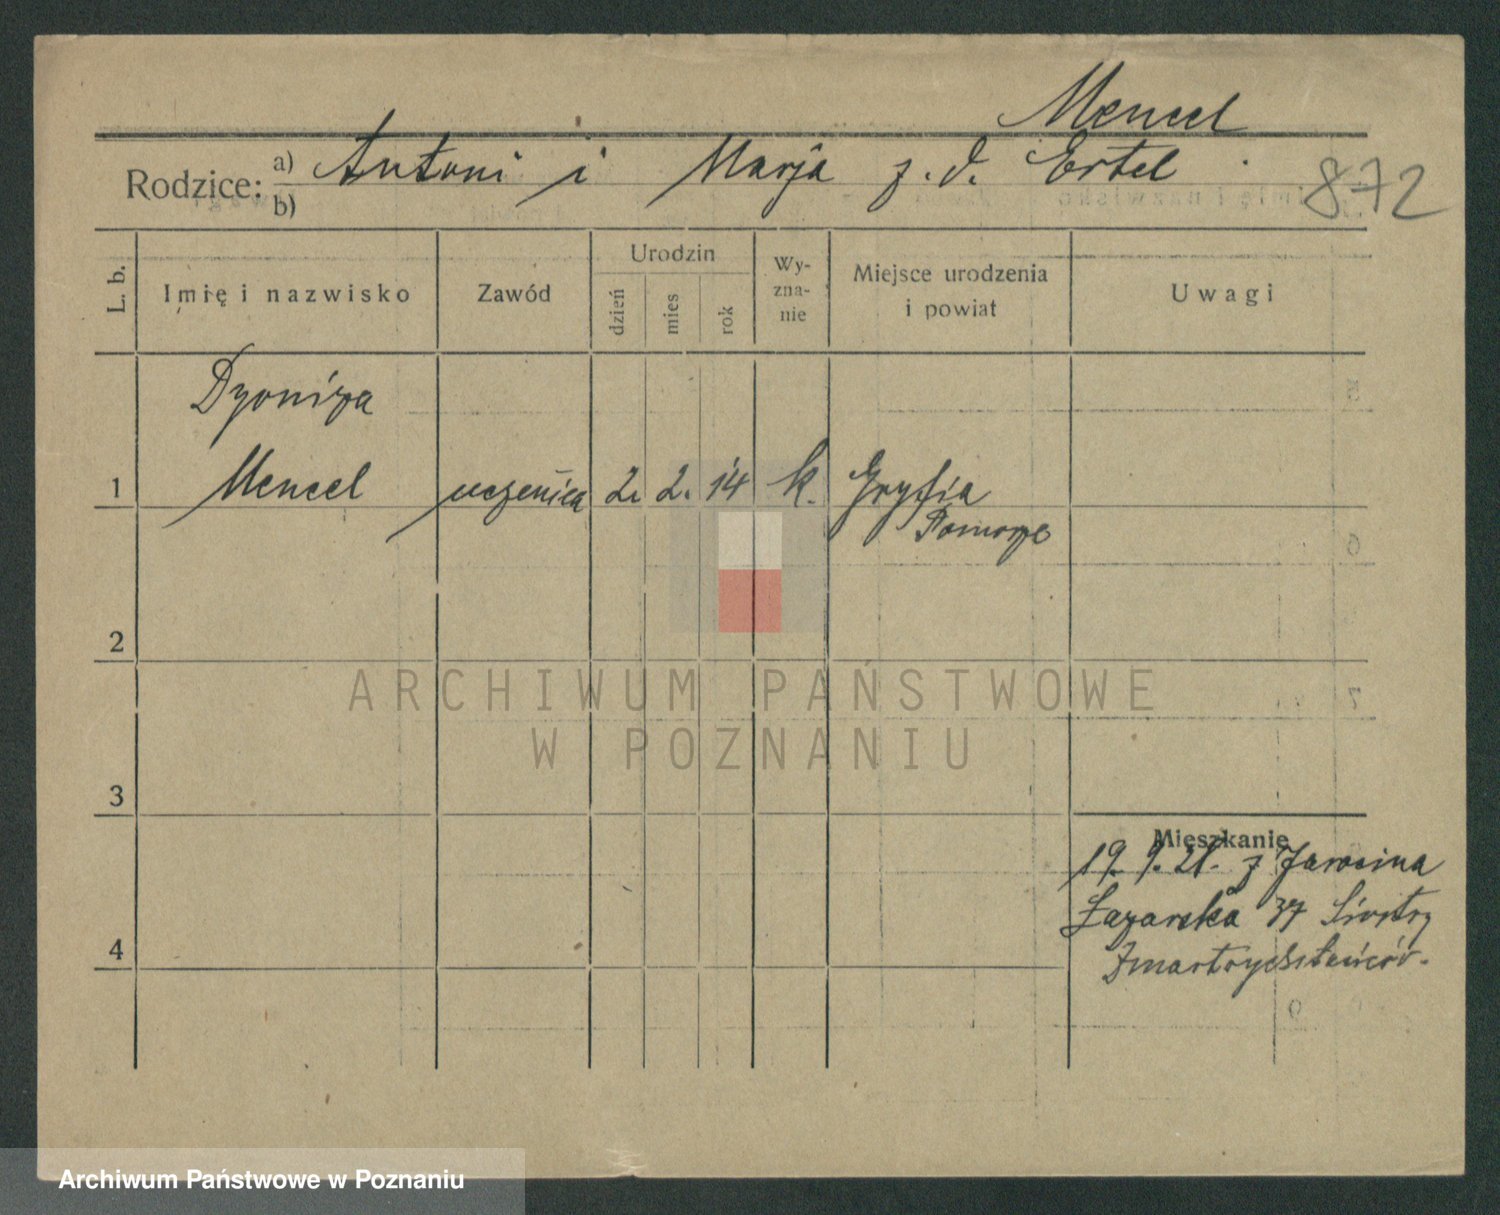 Mencel
Rodzice: a) Antoni i Marja z. d. Ertel
b)
872
L. b.
Imię i nazwisko
Zawód
Urodzin
dzień
mies
rok
Wy-
zna-
nie
Miejsce urodzenia
i powiat
Uwagi
Dyoniza
1 Mencel uczenica 2. 2. 14 k. Gryfia
Pomorze
2
3
4
Mieszkanie
19. 9. 21. z Jarocina
Łazarska 37 Siostry
Zmartwychstańców.
ARCHIWUM PAŃSTWOWE
W POZNANIU
Archiwum Państwowe w Poznaniu